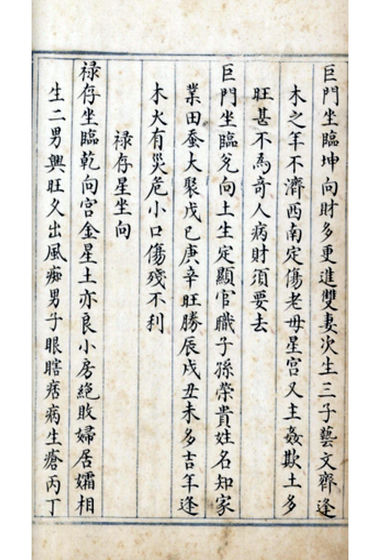 巨門坐臨坤向財多更進雙妻次生三子藝文齊逢
木之年不濟西南定傷老母星宫又主姦欺土多
旺甚不為奇人病財須要去
巨門坐臨兊向土生定顯官職子孫榮貴姓名知家
業田蚕大聚戊已庚辛旺勝辰戌丑未多吉年逢
木火有災危小口傷殘不利
禄存星坐向
禄存坐臨乾向宫金星土亦良小房絶敗婦居孀相
生二男興旺久出風痴男子眼瞎痞病生瘡丙丁